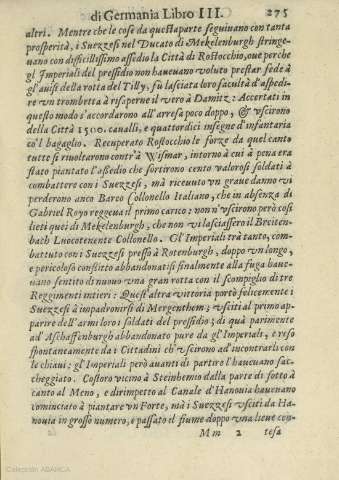 di Germania Libro III. 275
altri. Mentre che le cose da questa parte seguiuano con tanta
prosperità, i Suezzesi nel Ducato di Mekelenburgh stringe-
uano con difficilissimo assedio la Città di Rostocchio, oue perche
gl'Imperiali del pressidio non haueuano voluto prestar fede à
gl'auisi della rotta del Tilly, fu lasciata loro facultà d'aspedi-
re vn trombetta à risaperne il vero à Damitz: Accertati in
questo modo s'accordarono all'arresa poco doppo, & vscirono
della Città 1500. caualli, e quattordici insegne d'infantaria
co'l bagaglio. Recuperato Rostocchio le forze da quel canto
tutte si riuoltarono contr'à Wismar, intorno à cui à pena era
stato piantato l'assedio che sortirono cento valorosi soldati à
combattere con i Suezzesi, mà riceuuto vn graue danno vi
perderono anco Barco Collonello Italiano, che in absenza di
Gabriel Royo reggeua il primo carico: non n'vscirono però così
lieti quei di Mekelenburgh, che non vi lasciassero il Breiten-
bach Luocotenente Collonello. Gl'Imperiali trà tanto, com-
battuto con i Suezzesi presso à Rotenburgh, doppo vn longo,
e pericoloso conflitto abbandonatisi finalmente alla fuga haue-
uano sentito di nuouo vna gran rotta con il scompiglio di tre
Reggimenti intieri: Quest'altra vittoria portò felicemente i
Suezzesi à impadronirsi di Mergenthem; vsciti al primo ap-
parire dell'armi loro i soldati del pressidio; di quà parimente
ad'Aschaffenburgh abbandonato pure da gl'Imperiali, e reso
spontaneamente da i Cittadini ch'vscirono ad incontrarli con
le chiaui; gl'Imperiali però auanti di partire l'haueuano sac-
cheggiato. Costoro vicino à Steinhemio dalla parte di sotto à
canto al Meno, e dirimpetto al Canale d'Hanouia haueuano
cominciato à piantare vn Forte, mà i Suezzesi vsciti da Ha-
nouia in grosso numero, e passato il fiume doppo vna lieue con-
Mm 2 tesa
Colección ABANCA